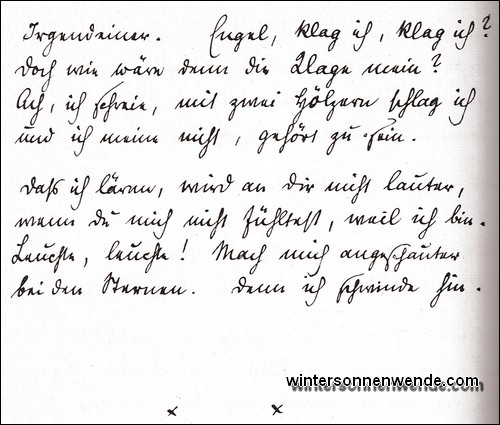 Irgendeiner. Engel, klag ich, klag ich?
Doch wie wäre denn die Klage mein?
Ach, ich schreie, mit zwei Hölzern schlag ich
und ich meine nicht, gehört zu sein.
Daß ich lärme, wird an dir nicht lauter,
wenn du mich nicht fühltest, weil ich bin.
Leuchte, leuchte! Mach mich angeschauter
bei den Sternen. Denn ich schwinde hin.
wintersonnenwende.com
x x